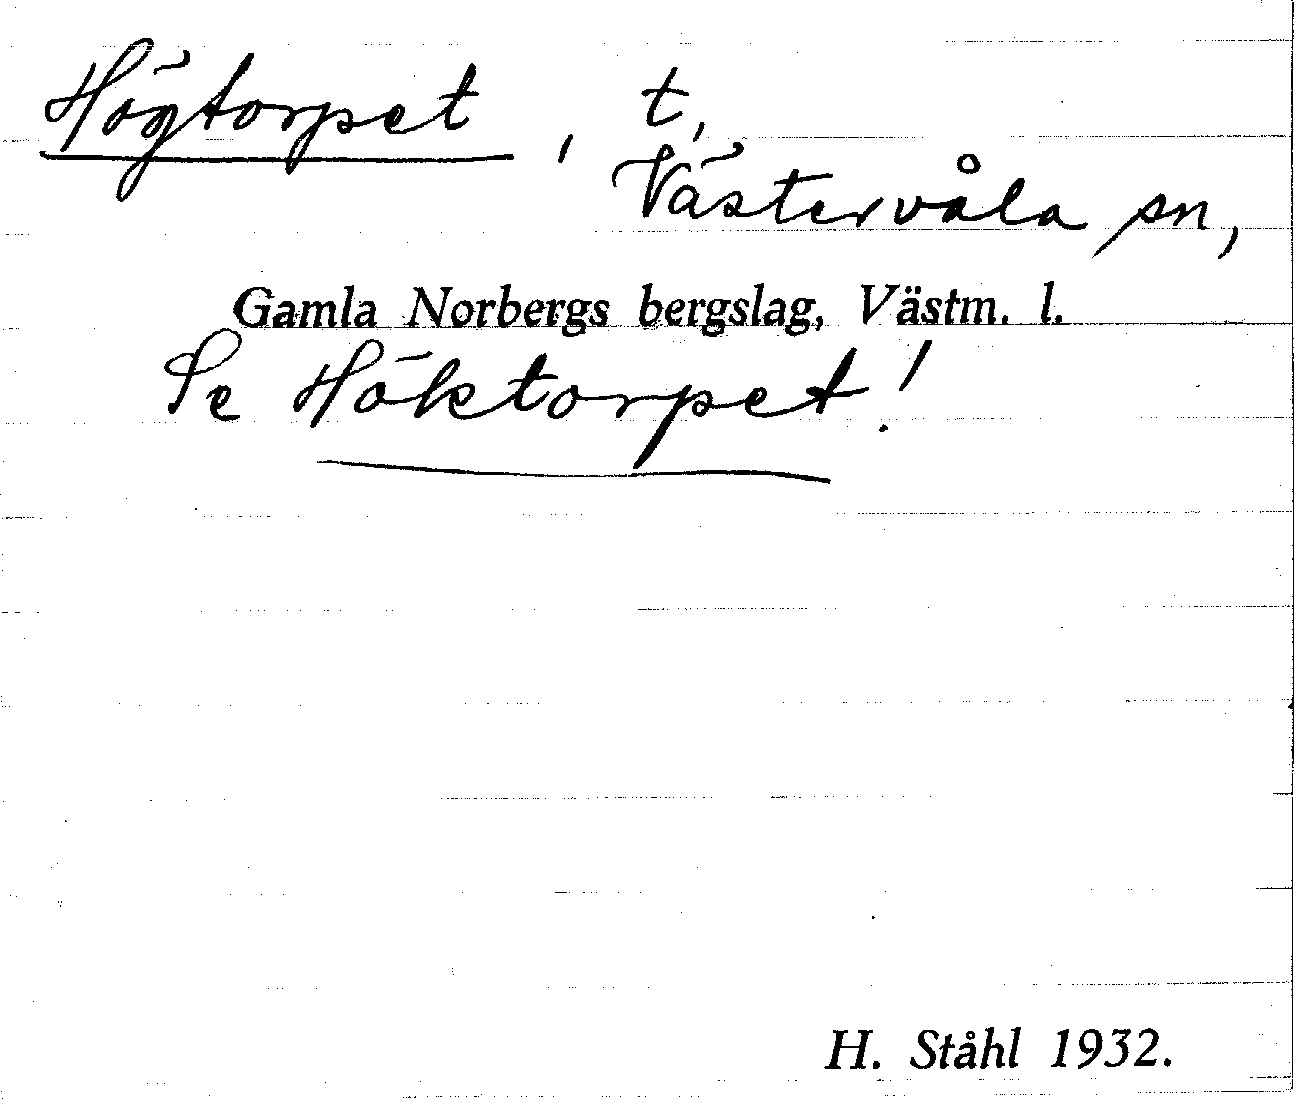 Högtorpet, t,
Västervåla sn,
Gamla Norbergs bergslag, Västm. l.
Se Höktorpet!
H. Ståhl 1932.